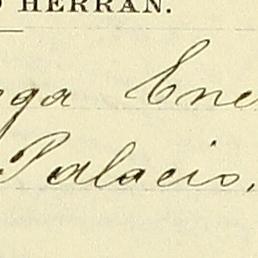 HERRAN.
ga Ene
Palacio.